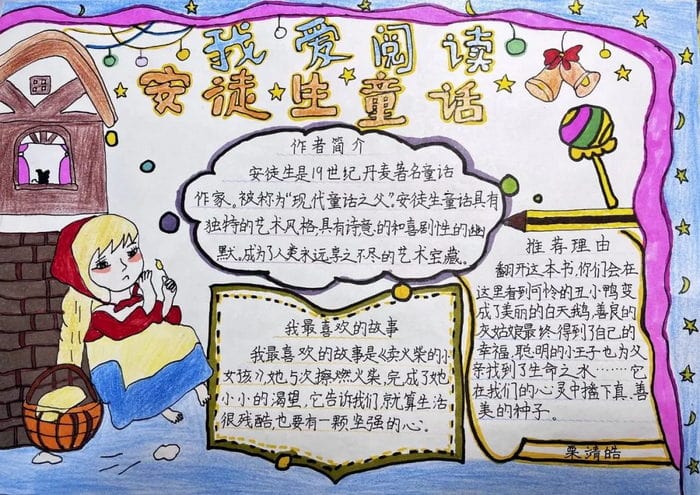 我爱阅读
安徒生童话
作者简介
安徒生是19世纪,丹麦著名童话
作家。被称为"现代童话之父"。安徒生童话具有
独特的艺术风格,具有诗意的和喜剧性的幽
默。成为了人类永远享之不尽的艺术宝藏。
推荐理由
翻开这本书,你们会在
这里看到可怜的丑小鸭变
成了美丽的白天鹅,善良的
灰姑娘最终得到了自己的
幸福,聪明的小王子也为父
亲找到了生命之水……它
在我们的心灵中播下真、善、
美的种子。
栗靖皓
我最喜欢的故事
我最喜欢的故事是《卖火柴的小
女孩》,她与次擦燃火柴,完成了她
小小的渴望。它告诉我们,就算生活
很残酷,也要有一颗坚强的心。